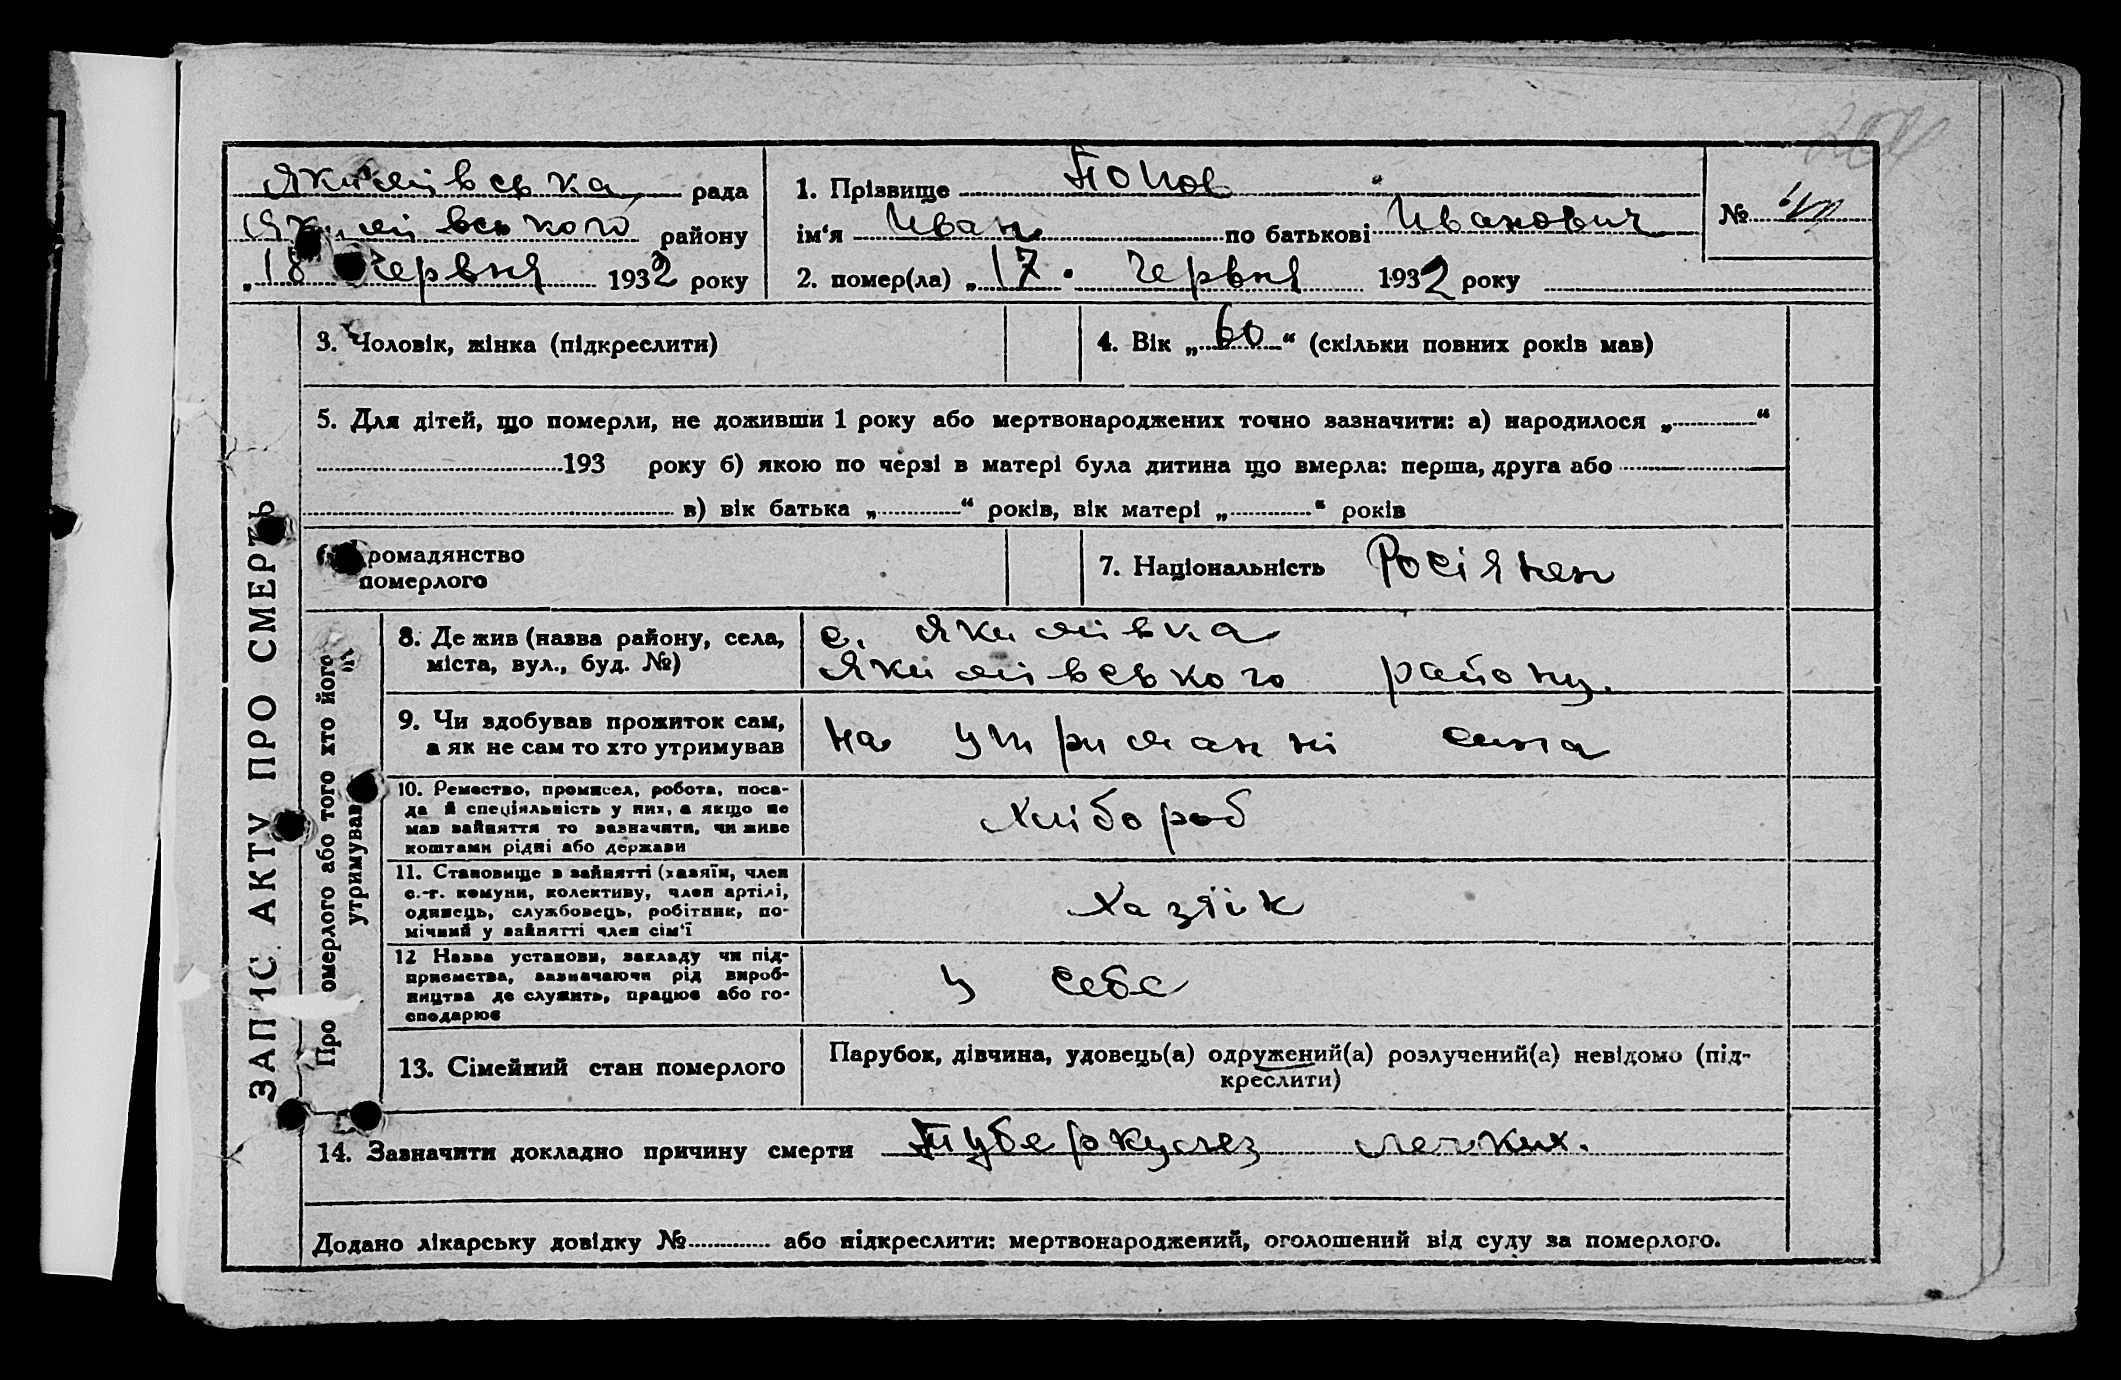 Якимівська рада
Якимівського району
„18 Червня 1932 року
1. Прізвище Попов
ім‘я Иван по батькові Иванович
2. помер(ла) „17 . Червня 1932 року
№
ЗАПИС АКТУ ПРО СМЕРТЬ
3. Чоловік, жінка (підкреслити)
4. Вік „60“ (скільки повних років мав)
5. Для дітей, що померли, не доживши 1 року або мертвонароджених точно зазначити: а) народилося „ “
193 року б) якою по черзі в матері була дитина що вмерла: перша, друга або
в) вік батька „ “ років, вік матері „ “ років
ромадянство
померлого
7. Національність Росіянен
Про омерлого або того хто його
утримував
8. Де жив (назва району, села,
міста, вул., буд. №)
с. Якимівка
Якимівського району.
9. Чи здобував прожиток сам,
а як не сам то хто утримував
на утриманні сина
10. Ремество, промисел, робота, поса-
да й спеціяльність у них, а якщо не
мав зайняття то зазначити, чи живе
коштами рідні або держави
Хлібороб
11. Становище в зайнятті (хазяїн, член
с.-г. комуни, колективу, член артілі,
одинець, службовець, робітник, по-
мічний у зайнятті член сім‘ї
Хазяїн
12 Назва установи, закладу чи під-
приємства, зазначаючи рід вироб-
ництва де служить, працює або го-
сподарює
у себе
13. Сімейний стан померлого
Парубок, дівчина, удовець(а) одружений(а) розлучений(а) невідомо (під-
креслити)
14. Зазначити докладно причину смерти Туберкулез легких.
Додано лікарську довідку № або підкреслити: мертвонароджений, оголошений від суду за померлого.